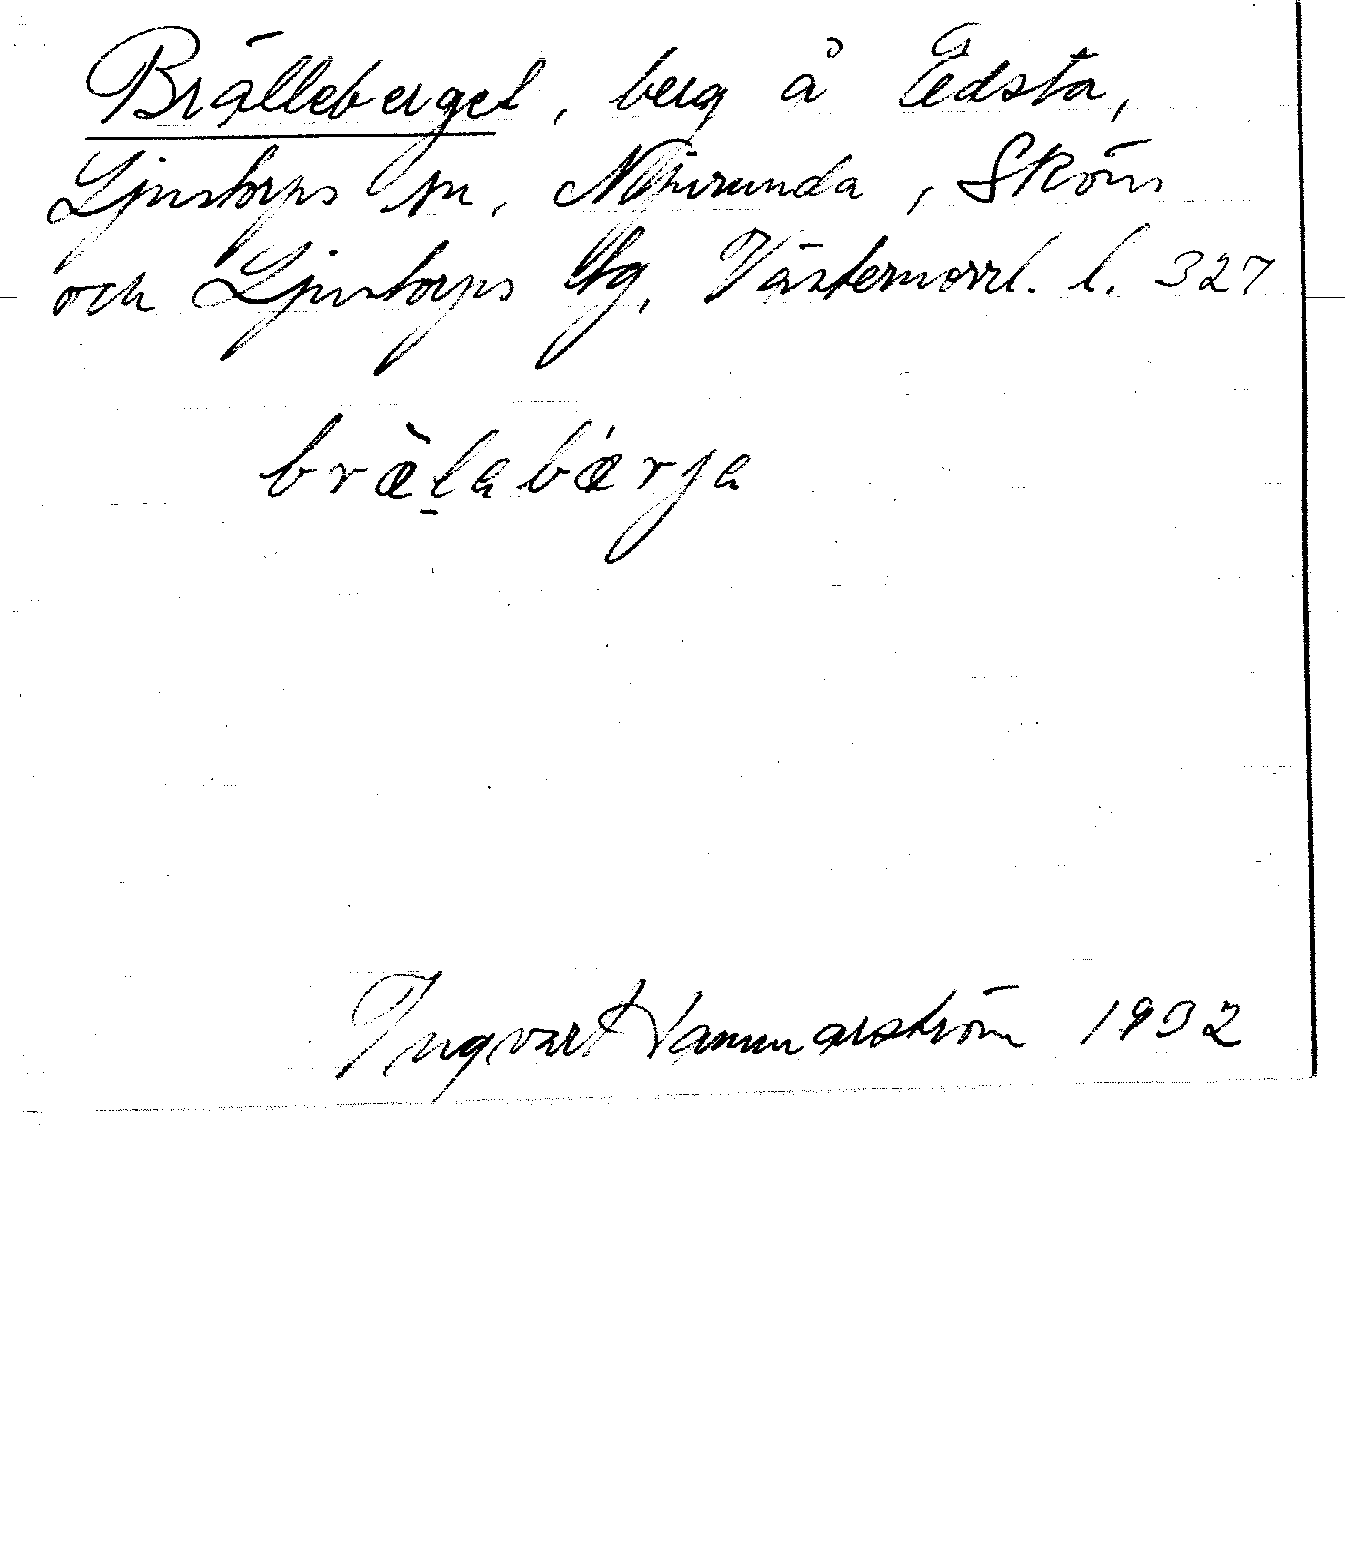 Brälleberget, berg å Edsta,
Ljustorps sn, Njurunda, Sköns
och Ljustorps tg, Västernorrl. l. 327
bræ̀laba̋rja
Ingvart Vammarström 1932